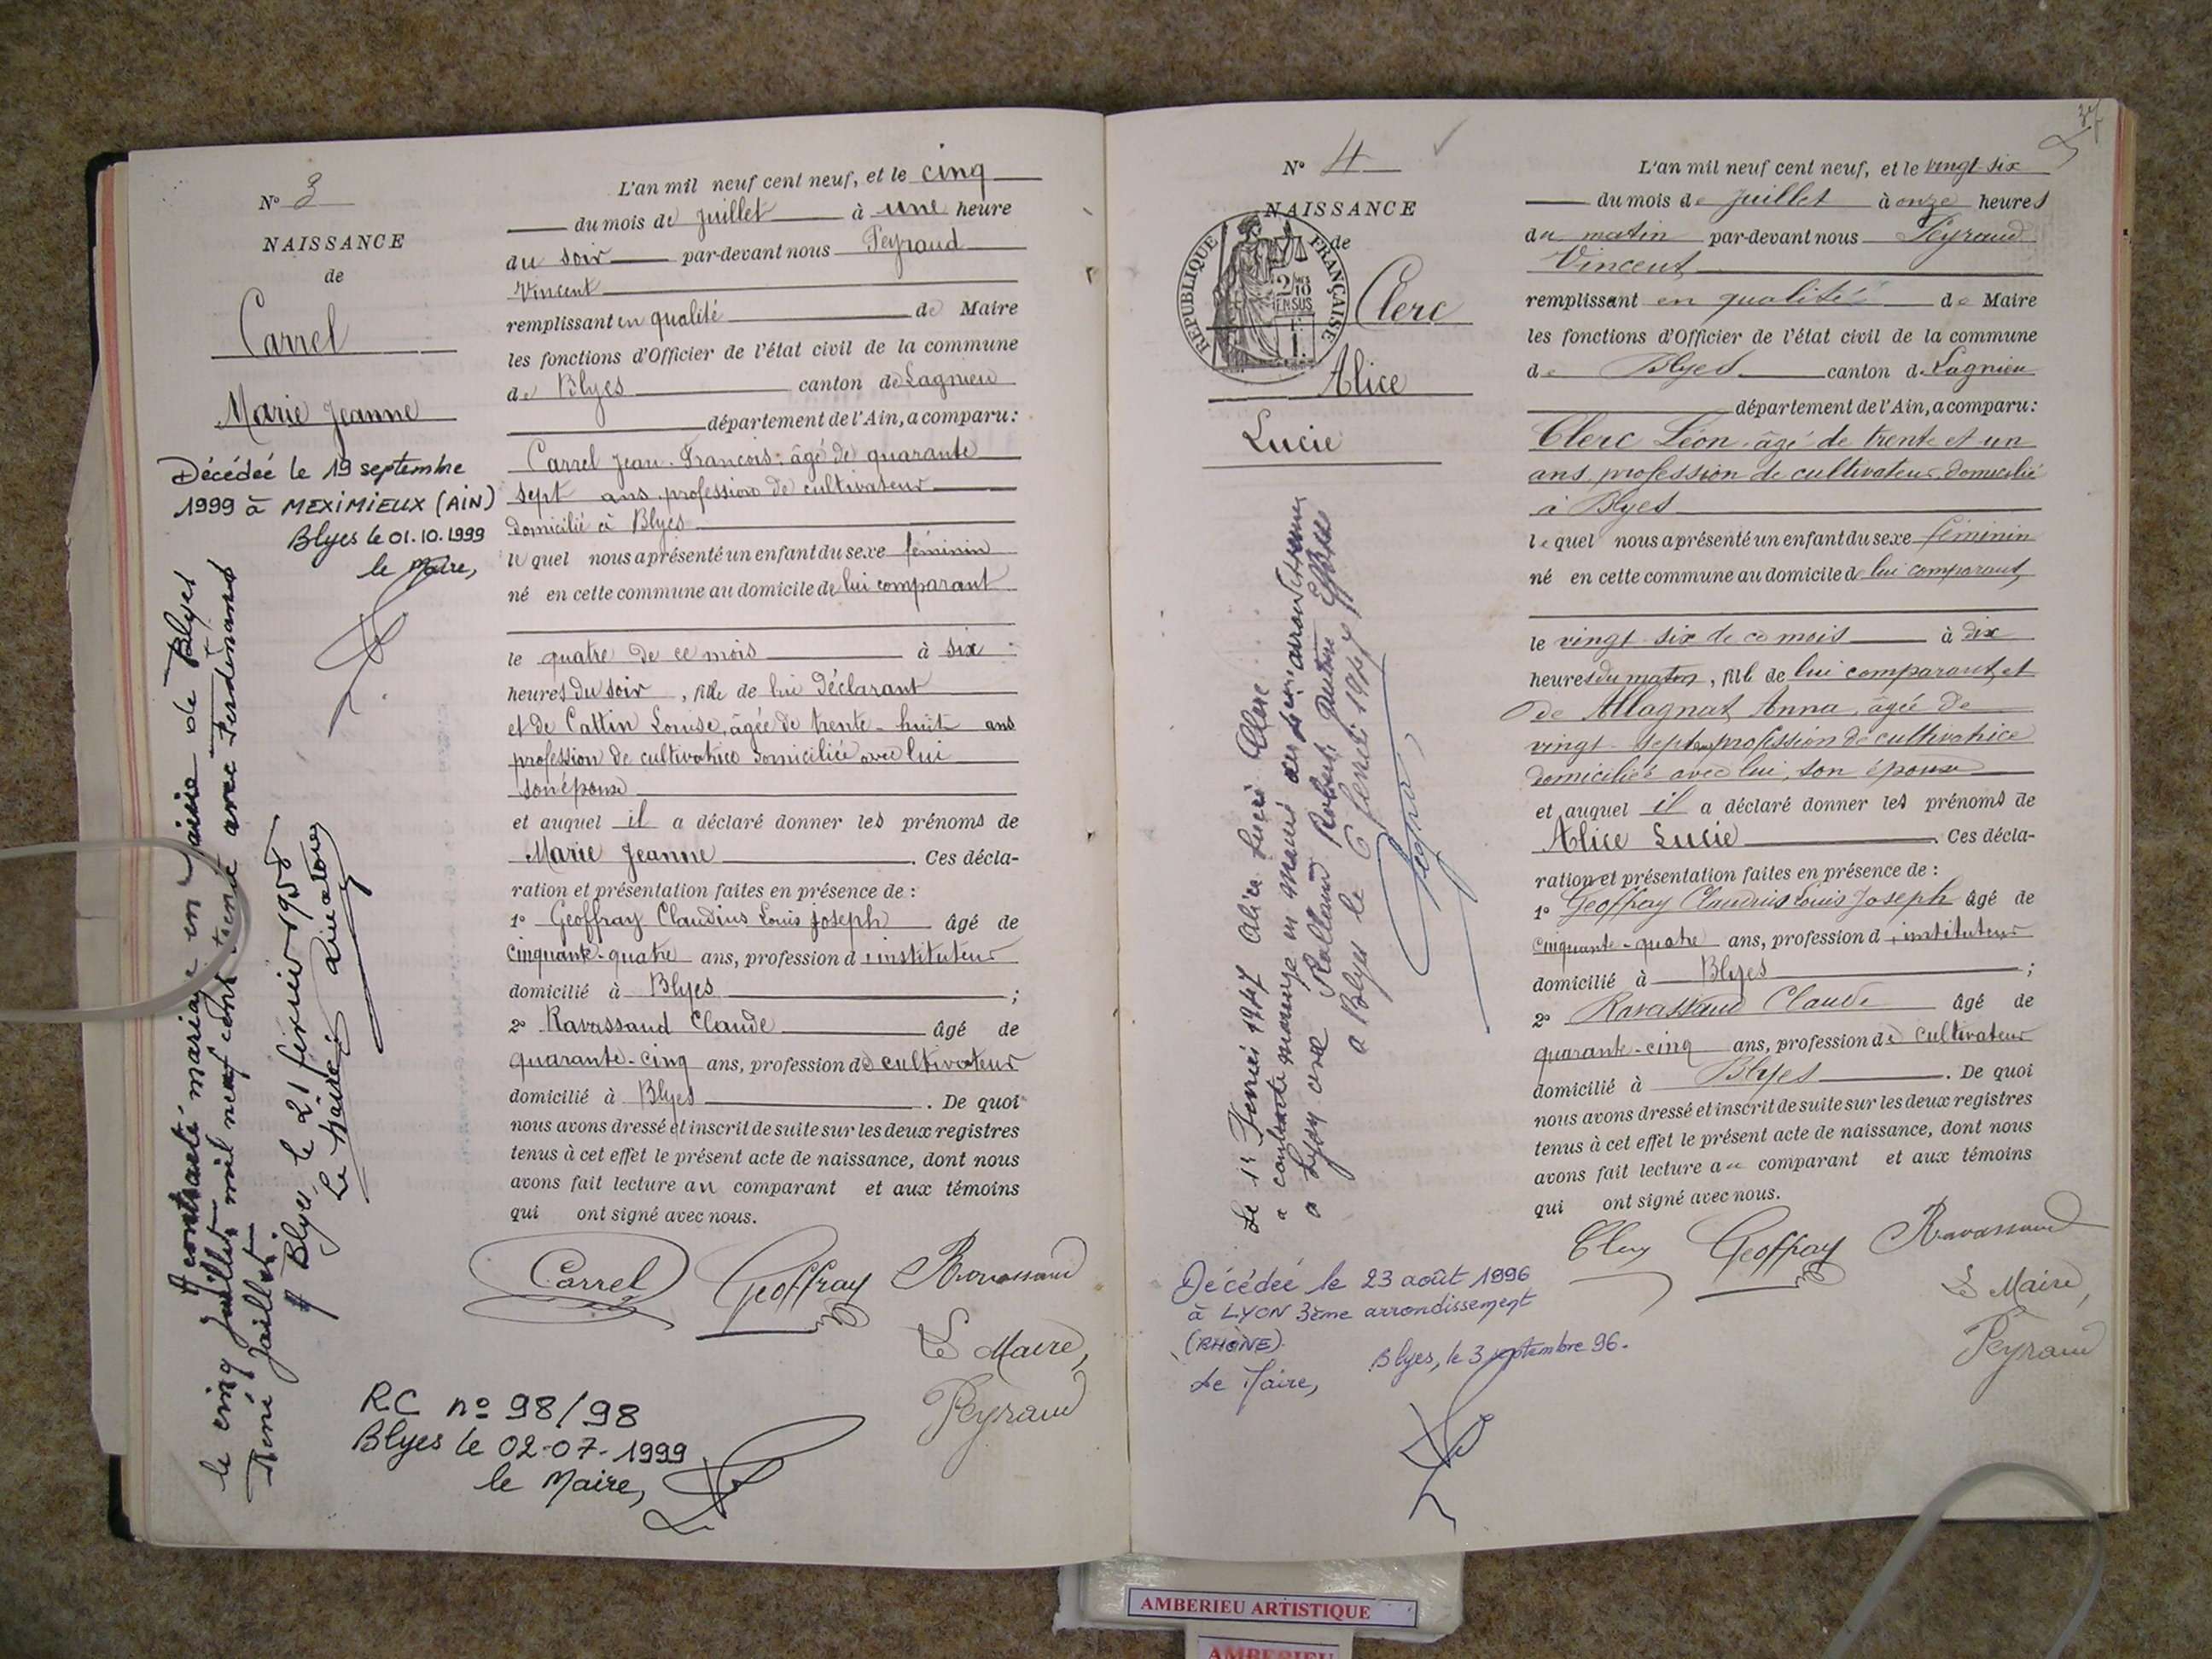 N° 3
NAISSANCE
de
Carrel
Marie Jeanne
Décédée le 19 septembre
1999 à MEXIMIEUX (AIN)
Blyes le 01.10.1999
le Maire,
A contracté mariage en Mairie de Blyes
le cinq Juillet mil neuf cent trente avec Ferdinand
René Jaillet
A Blyes, le 21 février 1958
Le Maire
RC n° 98/98
Blyes le 02-07-1999
le Maire,
L'an mil neuf cent neuf, et le cinq
du mois de Juillet à une heure
du soir par-devant nous Peyraud
Vincent
remplissant en qualité de Maire
les fonctions d'Officier de l'état civil de la commune
de Blyes canton de Lagnieu
département de l'Ain, a comparu:
Carrel Jean-François âgé de quarante
sept ans profession de cultivateur
domicilié à Blyes
lequel nous a présenté un enfant du sexe féminin
né en cette commune au domicile de lui comparant
le quatre de ce mois à six
heures du soir, fille de lui déclarant
et de Cattin Louise, âgée de trente-huit ans
profession de cultivatrice domiciliée avec lui
son épouse
et auquel il a déclaré donner les prénoms de
Marie Jeanne. Ces décla-
ration et présentation faites en présence de :
1° Geoffray Claudius Louis Joseph âgé de
cinquante-quatre ans, profession d'instituteur
domicilié à Blyes ;
2° Ravassaud Claude âgé de
quarante-cinq ans, profession de cultivateur
domicilié à Blyes. De quoi
nous avons dressé et inscrit de suite sur les deux registres
tenus à cet effet le présent acte de naissance, dont nous
avons fait lecture au comparant et aux témoins
qui ont signé avec nous.
Carrel Geoffray Ravassaud
Le Maire,
Peyraud
N° 4
NAISSANCE
de
REPUBLIQUE FRANÇAISE
Clerc
Alice
Lucie
Le 1er Février 1947 Alice Lucie Clerc
a contracté mariage en mairie du arrondissement
à Lyon avec Rolland Robert
à Blyes le 6 Février 1947
Décédée le 23 août 1996
à LYON 3ème arrondissement
(RHÔNE).
Blyes, le 3 septembre 96.
Le Maire,
L'an mil neuf cent neuf, et le vingt-six
du mois de Juillet à onze heures
du matin par-devant nous Peyraud
Vincent
remplissant en qualité de Maire
les fonctions d'Officier de l'état civil de la commune
de Blyes canton de Lagnieu
département de l'Ain, a comparu:
Clerc Léon âgé de trente et un
ans profession de cultivateur, domicilié
à Blyes
lequel nous a présenté un enfant du sexe féminin
né en cette commune au domicile de lui comparant
le vingt-six de ce mois à dix
heures du matin, fille de lui comparant, et
de Allagnat Anna, âgée de
vingt-sept ans profession de cultivatrice
domiciliée avec lui, son épouse
et auquel il a déclaré donner les prénoms de
Alice Lucie. Ces décla-
ration et présentation faites en présence de :
1° Geoffray Claudius Louis Joseph âgé de
cinquante-quatre ans, profession d'instituteur
domicilié à Blyes ;
2° Ravassaud Claude âgé de
quarante-cinq ans, profession de cultivateur
domicilié à Blyes. De quoi
nous avons dressé et inscrit de suite sur les deux registres
tenus à cet effet le présent acte de naissance, dont nous
avons fait lecture au comparant et aux témoins
qui ont signé avec nous.
Clerc Geoffray Ravassaud
Le Maire,
Peyraud
AMBERIEU ARTISTIQUE
AMBERIEU